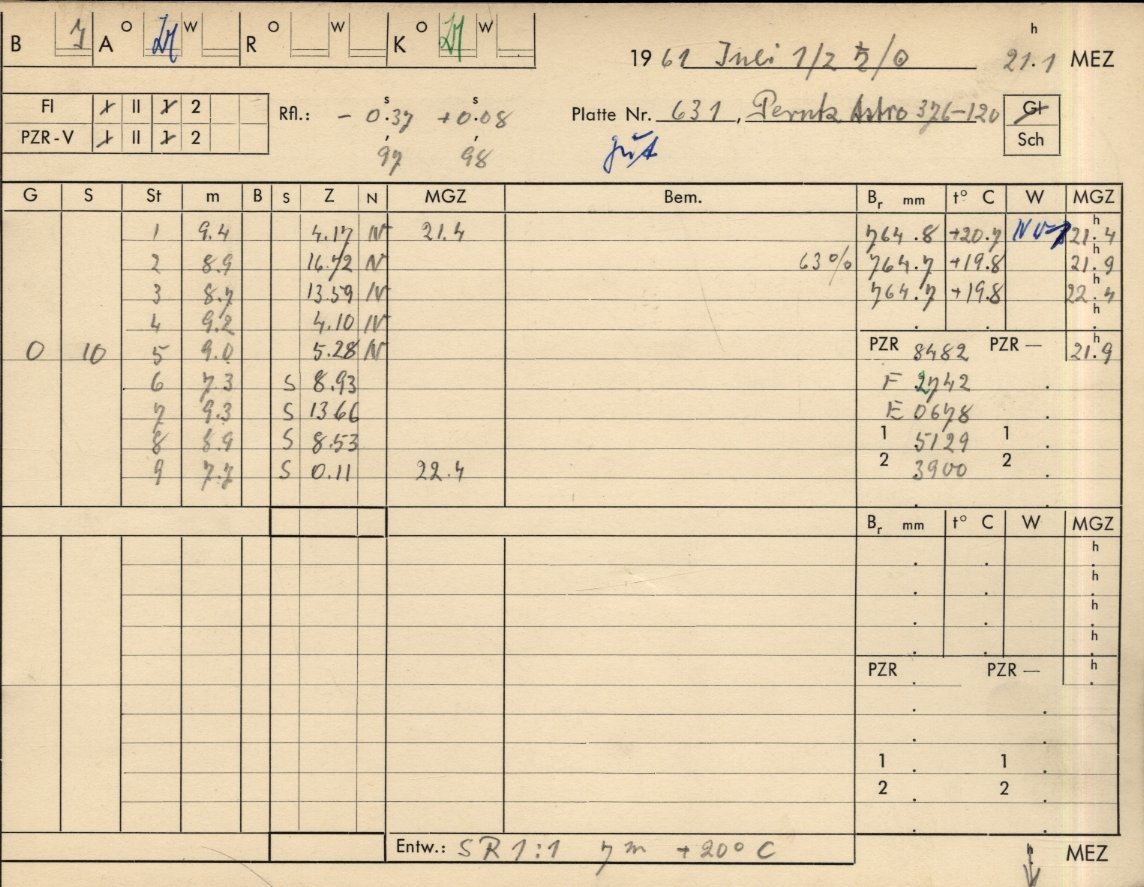 B A O W R O W K O W
19 61 Juli 1/2 ♄/⊙ 21.1 h MEZ
FI I II 1 2 Rfl.: - 0.37 s +0.08 s Platte Nr. 631, Astro 376-120 Gl
PZR-V I II 1 2 97 98 gut Sch
G S St m B S Z N MGZ Bem. Br mm t° C W MGZ
1 9.4 4.17 N 21.4 764.8 +20.7 21.4 h
2 8.9 16.72 N 63% 764.7 +19.8 21.9 h
3 8.7 13.59 N 764.7 +19.8 22.4 h
4 9.2 4.10 N h
0 10 5 9.0 5.28 N PZR 8482 PZR — 21.9 h
6 7.3 S 8.93 F 2742
7 9.3 S 13.66 E 0678
8 8.9 S 8.53 1 5129 1
9 7.7 S 0.11 22.4 2 3900 2
Br mm t° C W MGZ
h
h
h
h
PZR PZR — h
1 1
2 2
Entw.: SR 1:1 7 m +20° C h MEZ